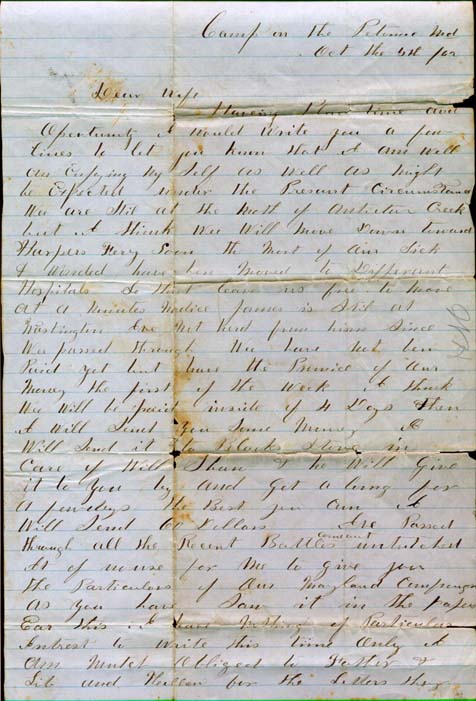 Camp on the Potomac Md
Oct the 5th /62
Dear Wife
Having time and
Opertunity I would Write you a few
lines to let you know that I am well
an Enjoying My Self as well as might
be Expected under the Present Circumstance
We are Stil at the Moth of Antietum Creek
but I think Wee Will Move Down toward
Harpers Fery Soon the Most of Our Sick
& Wonded have ben Moved to Different
Hospitals So that leaves us free to Move
at a Minutes Notice James is Stil at
Washington have Not herd from him Since
Wee passed through Wee have Not ben
Paid yet but have the Promice of Our
Money the first of the Week I think
Wee Will be paid inside of 4 Days then
I Will Send you Some Money I
Will Send it to Black Stone in
Care of Will & he Will Give
it to you try and Get a long for
a few days the Best you Can I
Will Send 60 Dollars have Passed
through all the Recent Battles untutched
it of no use for Me to give you
the Particulars of Our Maryland Campaign
as you have Saw it in the Paper
Ear this I have Nothing of Particular
Intrest to Write this time Only I
Am Mutch Obliged to Father &
Lib and for the Letters they